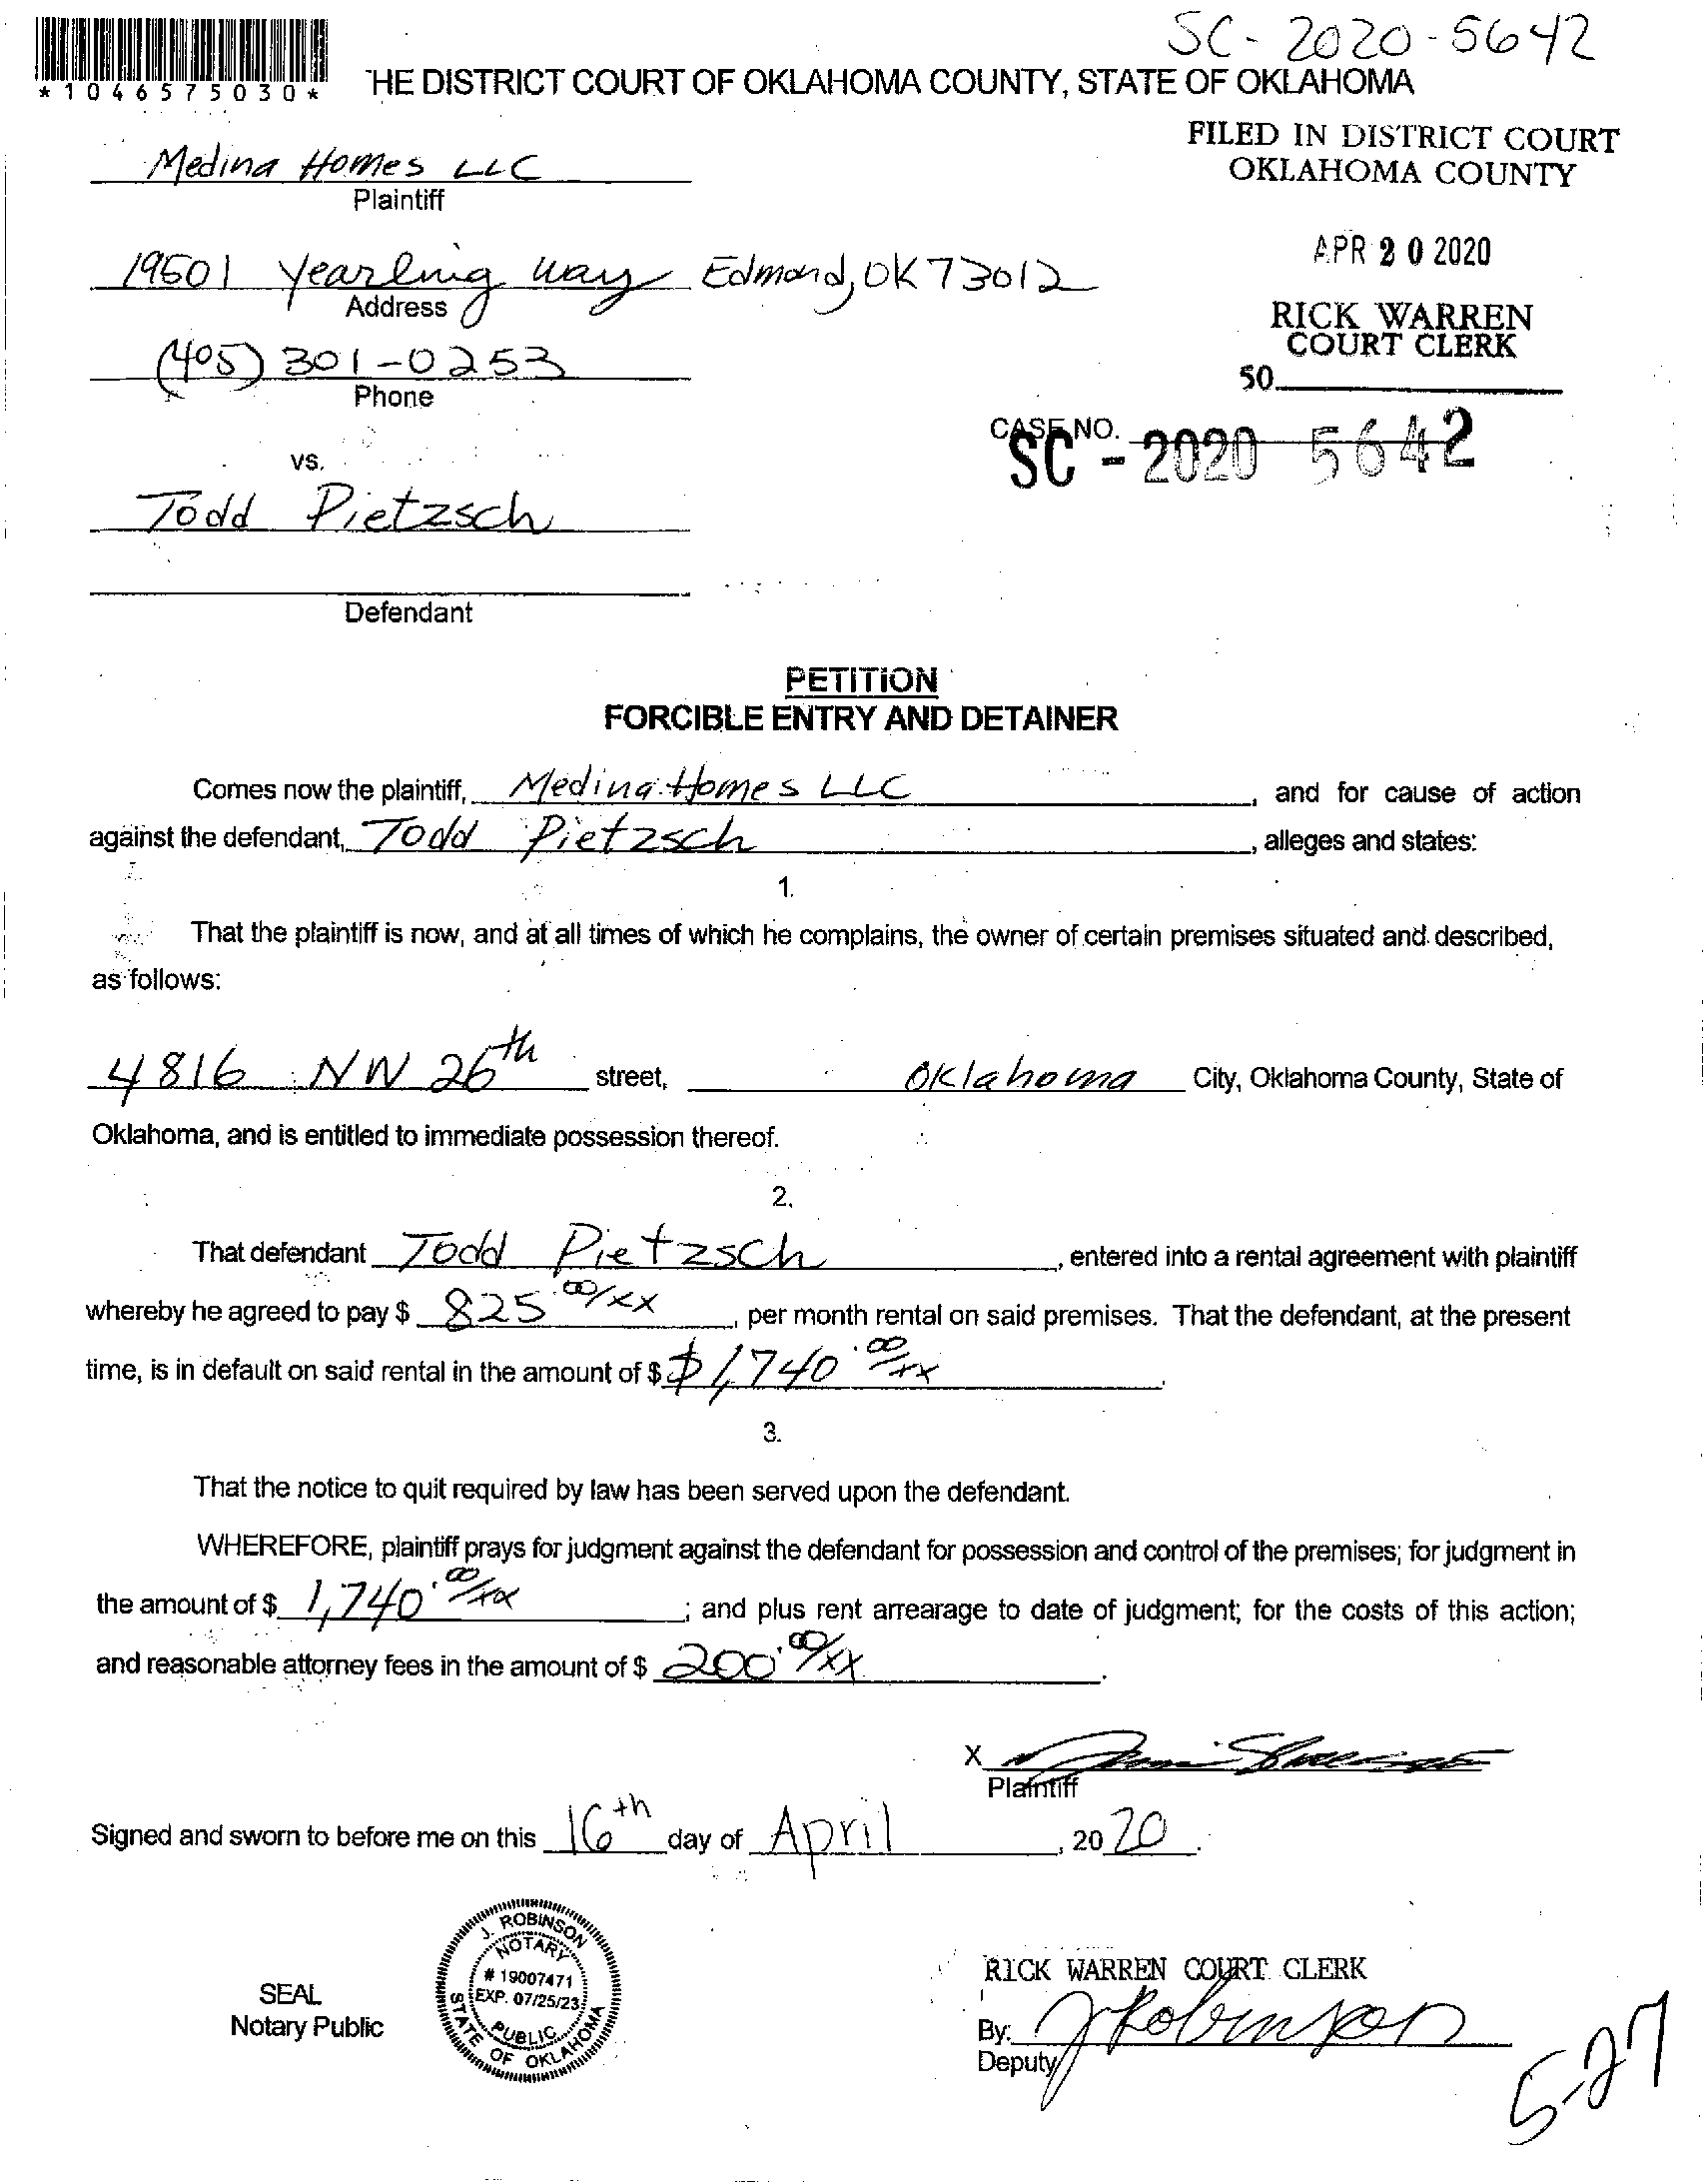 SC-2020-5642
*1046575030*
THE DISTRICT COURT OF OKLAHOMA COUNTY, STATE OF OKLAHOMA
FILED IN DISTRICT COURT
OKLAHOMA COUNTY
Medina Homes LLC
Plaintiff
APR 20 2020
19501 Yearling Way Edmond, OK 73012
Address
RICK WARREN
COURT CLERK
(405) 301-0253
Phone
50
CASE NO.
SC - 2020 5642
vs.
Todd Pietzsch
Defendant
PETITION
FORCIBLE ENTRY AND DETAINER
Comes now the plaintiff, Medina Homes LLC, and for cause of action
against the defendant, Todd Pietzsch, alleges and states:
1.
That the plaintiff is now, and at all times of which he complains, the owner of certain premises situated and described,
as follows:
4816 NW 26th street, Oklahoma City, Oklahoma County, State of
Oklahoma, and is entitled to immediate possession thereof.
2.
That defendant Todd Pietzsch, entered into a rental agreement with plaintiff
whereby he agreed to pay $ 825.00/xx, per month rental on said premises. That the defendant, at the present
time, is in default on said rental in the amount of $ $1,740.00/xx.
3.
That the notice to quit required by law has been served upon the defendant.
WHEREFORE, plaintiff prays for judgment against the defendant for possession and control of the premises; for judgment in
the amount of $ 1,740.00/xx; and plus rent arrearage to date of judgment; for the costs of this action;
and reasonable attorney fees in the amount of $ 200.00/xx.
X
Plaintiff
Signed and sworn to before me on this 16th day of April, 2020.
J. ROBINSON
NOTARY
# 19007471
EXP. 07/25/23
PUBLIC
STATE OF OKLAHOMA
SEAL
Notary Public
RICK WARREN COURT CLERK
By: J Robinson
Deputy
5-27